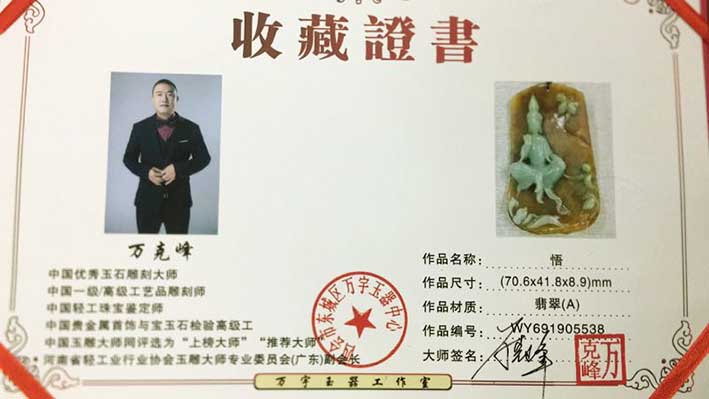 收藏證書
万克峰
中国优秀玉石雕刻大师
中国一级/高级工艺品雕刻师
中国轻工珠宝鉴定师
中国贵金属首饰与宝玉石检验高级工
中国玉雕大师网评选为“上榜大师”“推荐大师”
河南省轻工业行业协会玉雕大师专业委员会(广东)副会长
作品名称: 悟
作品尺寸: (70.6x41.8x8.9)mm
作品材质: 翡翠(A)
作品编号: WY691905538
大师签名:
万克峰
会市东城区万字玉器中心
万字玉器工作室